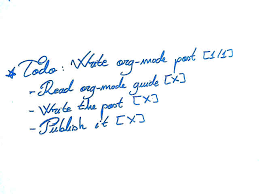 * Todo: Write org-mode post [1/1]
- Read org-mode guide [X]
- Write the post [X]
- Publish it [X]